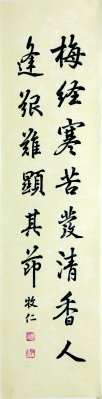 梅经寒苦发清香人
逢艰难顯其节
牧仁